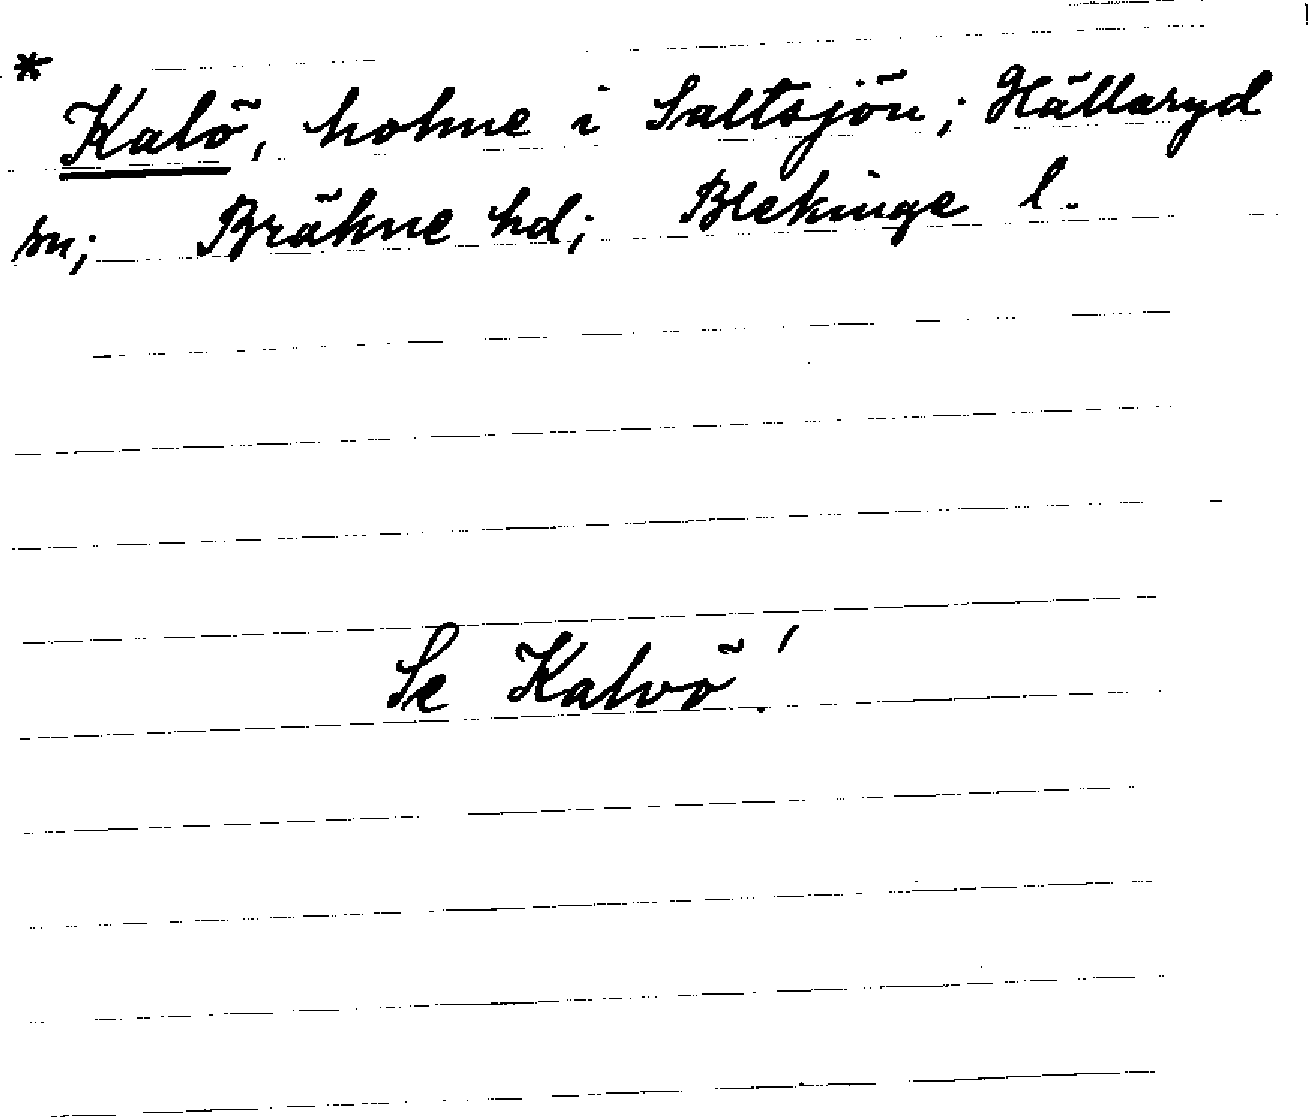 * Kalö, holme i Saltsjön; Hällaryd
sn; Bräkne hd; Blekinge l.
Se Kalvö!